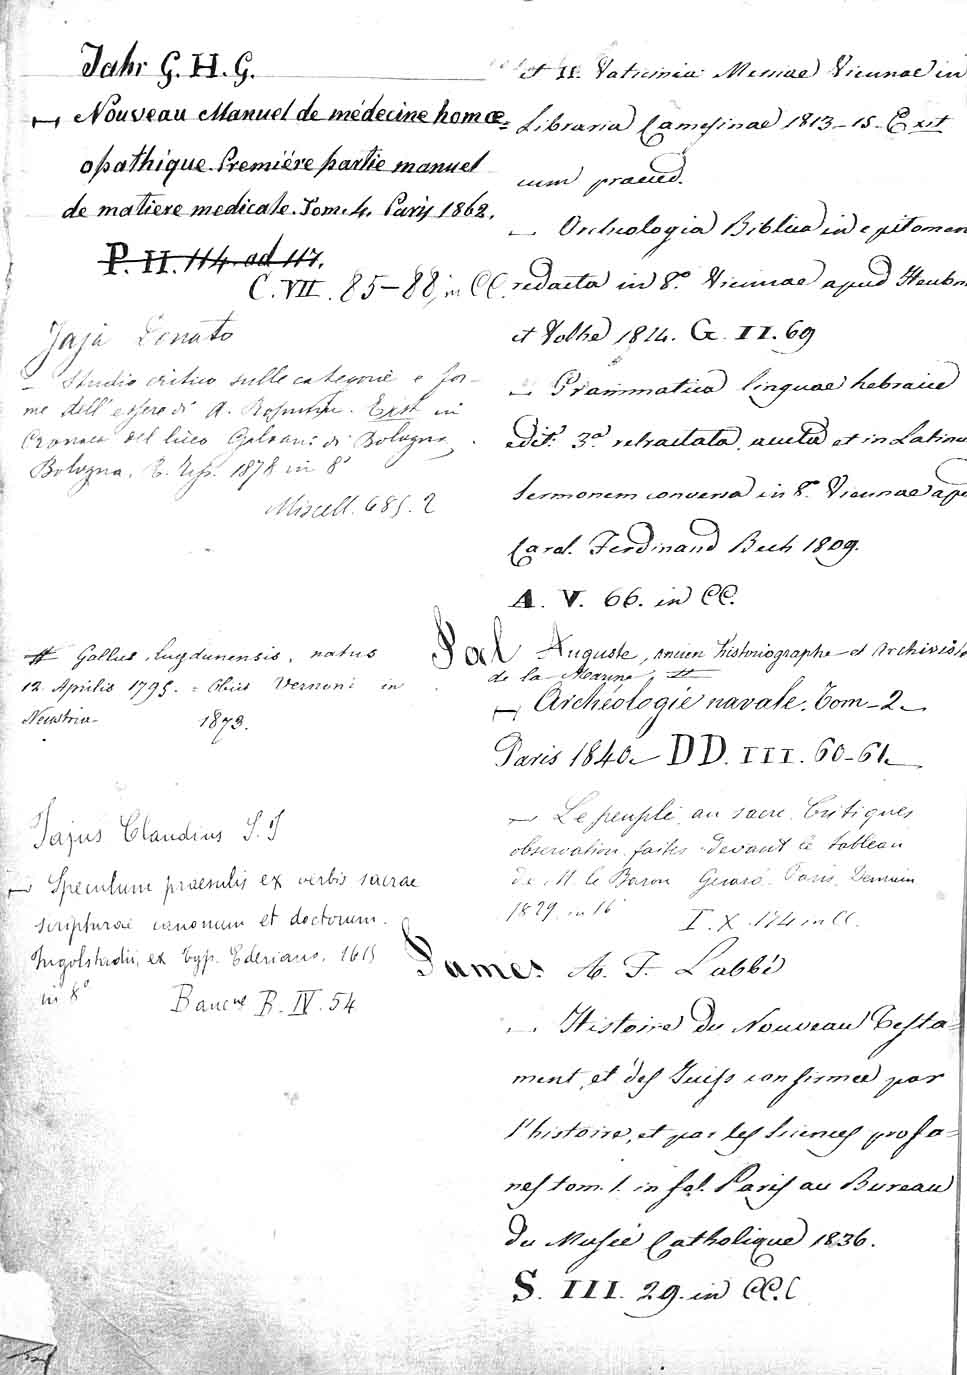 Jahr G. H. G.
— Nouveau Manuel de médecine homœ=
opathique. Premiére partie manuel
de matiere medicale. Tom. 4. Paris 1862.
P. II. 114. ad 117.
C. VII. 85-88, in CC.
Jajà Donato
— Studio critico sulle categorie e for-
me dell'essere di A. Rosmini. Exst in
Cronaca del liceo Galvani di Bologna,
Bologna, 1878 in 8°
Miscell. 685. 2
# Gallus, Lugdunensis, natus
12. Aprilis 1795. = Obiit Vernoni in
Neustria 1873.
Jajus Claudius S. J
— Speculum praesulis ex verbis sacrae
scripturae canonum et doctorum.
Ingolstadii, ex Typ. Ederiano, 1615
in 8° Banc B. IV. 54
et II. Vatirinia Messiae Viennae in
Libraria Camesinae 1813-15. Exit
cum praeced.
— Archeologia Biblica in epitomen
redacta in 8°. Viennae apud Heubn
et Volke 1814. G. II. 69
— Grammatica linguae hebraice
edit. 3ª retractata, aucta et in Latinu
sermonem conversa in 8°. Viennae apu
Carol. Ferdinand Bech 1809.
A. V. 66. in CC.
Jal Auguste, ancien historiographe et Archivist
de la Marine, #
— Archéologie navale. Tom. 2.
Paris 1840. DD. III. 60-61.
— Le peuple au sacre. Critiques
observation faites devant le tableau
de M. le Baron Gerard. Paris, Demain
1829. in 16°
I. X. 174 in CC.
James A. F. Labbé
— Histoire du Nouveau Testa=
ment, et des Juifs confirmée par
l'histoire, et par les sciences profa=
nes tom. 1. in fol. Paris au Bureau
du Musée Catholique 1836.
S. III. 29. in CC.